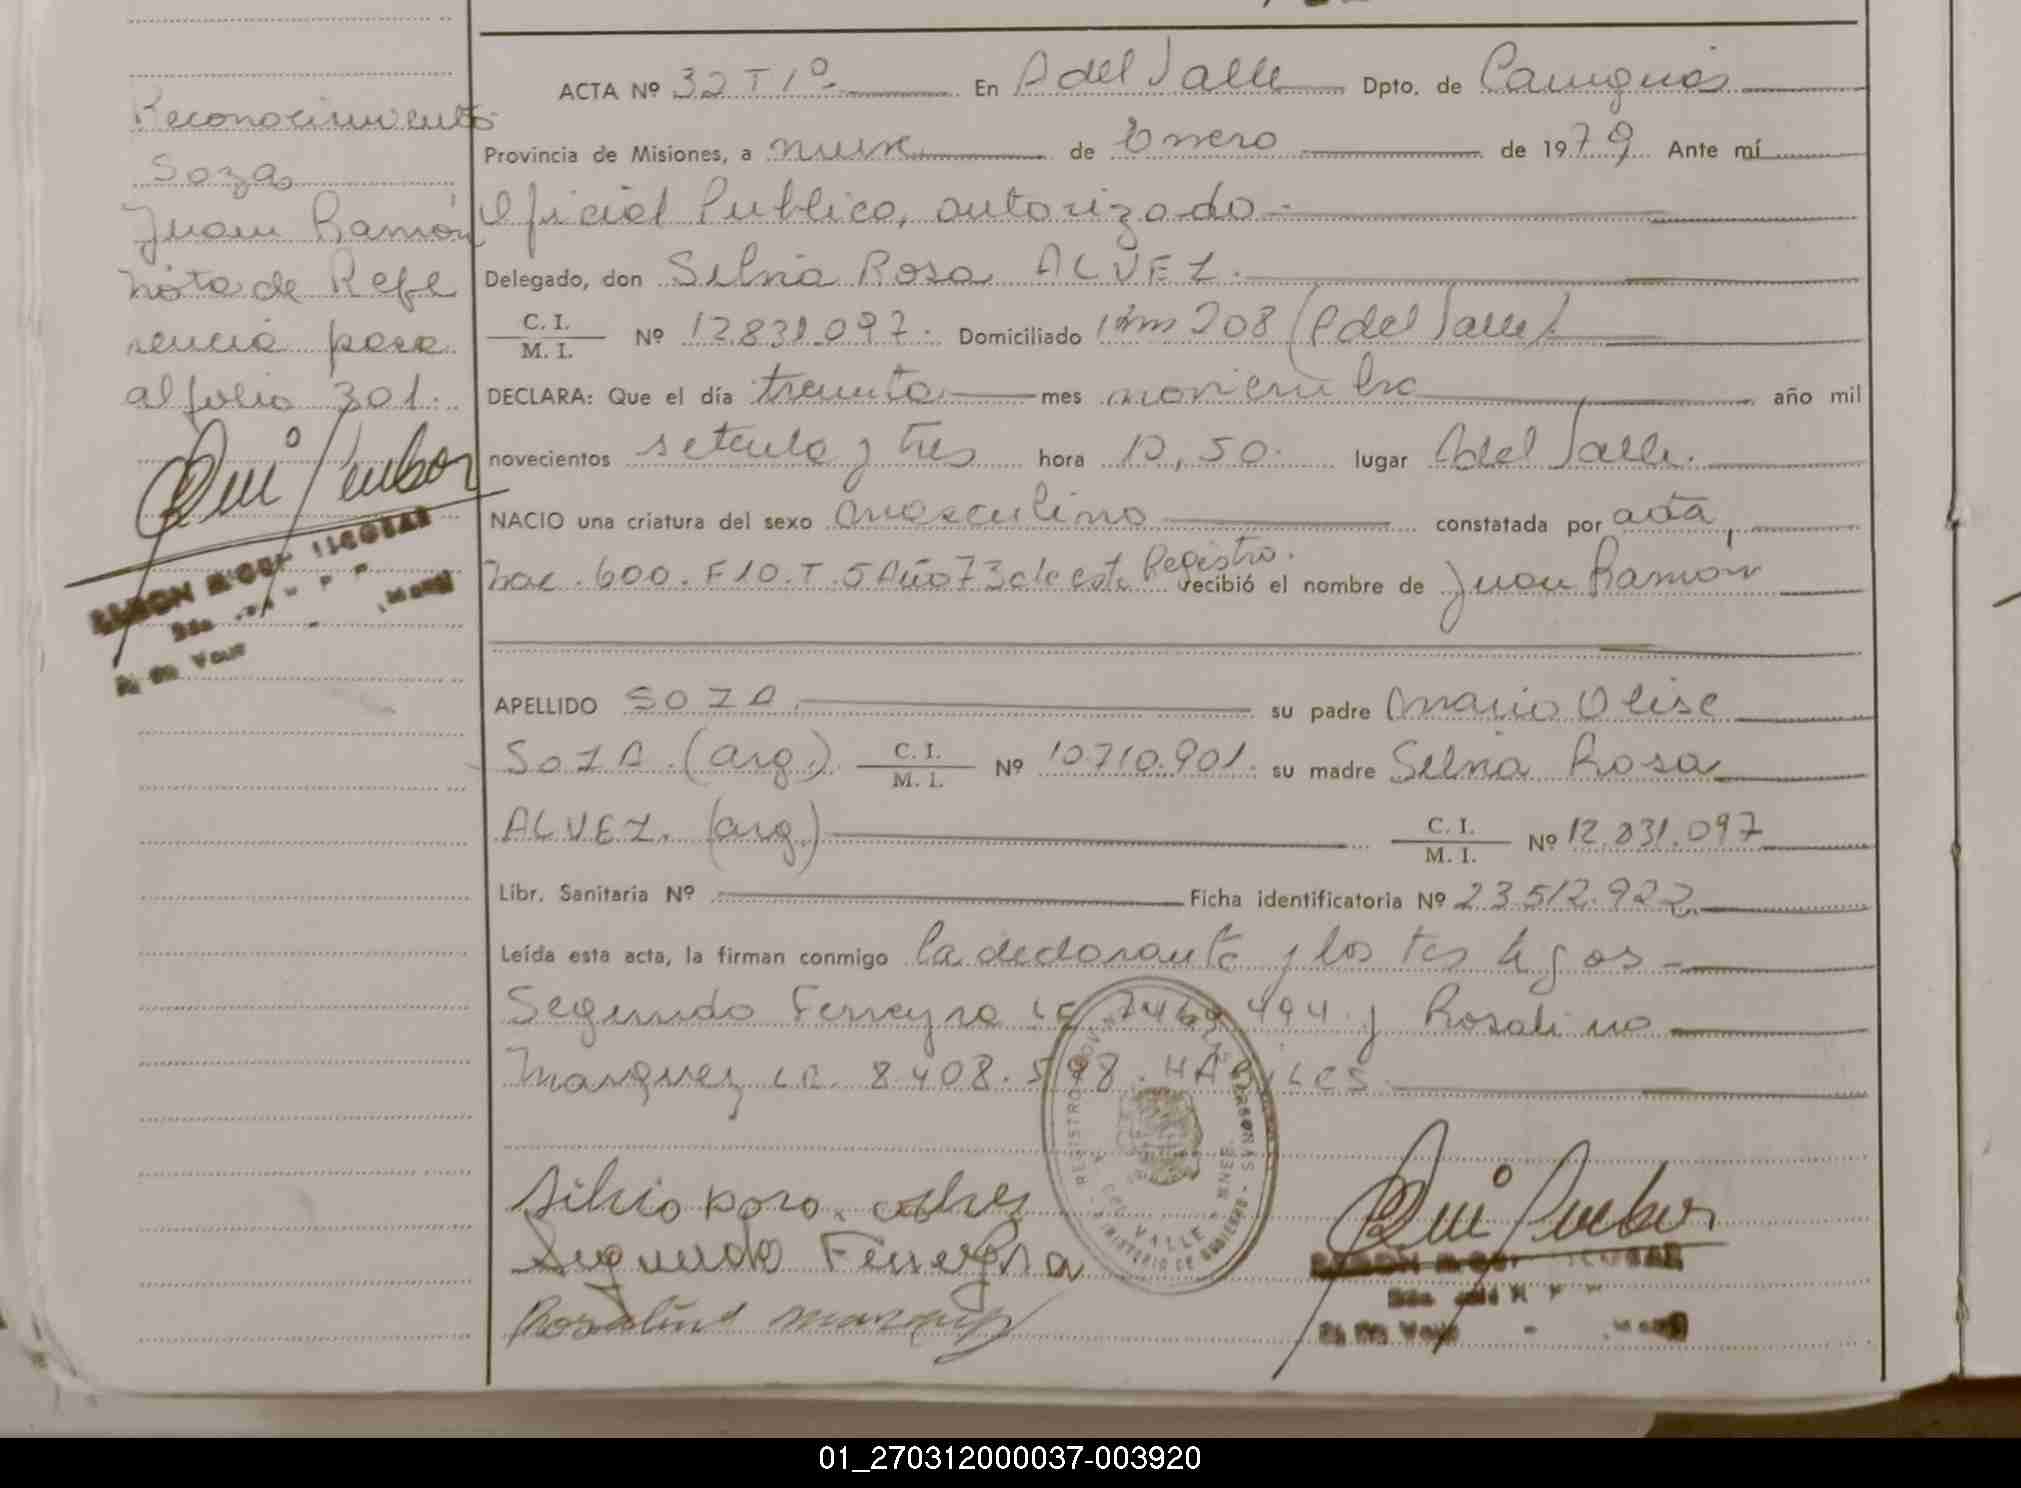 Reconocimiento
Soza
Juan Ramón
Nota de Refe
rencia pasa
al folio 301.
ACTA Nº 32 T 1º En A del Valle Dpto. de Cainguás
Provincia de Misiones, a nueve de Enero de 1979 Ante mí
Oficial Publico, autorizado
Delegado, don Selvia Rosa ALVEZ.
C. I. / M. I. Nº 12.831.097. Domiciliado Km 208 (A del Valle)
DECLARA: Que el día treinta mes noviembre año mil
novecientos setenta y tres hora 10,50. lugar A del Valle.
NACIO una criatura del sexo masculino constatada por acta,
Nac. 600. F 10. T. 5 Año 73 de este Registro. recibió el nombre de Juan Ramón
APELLIDO SOZA su padre Mario Olise
SOZA (arg.) C. I. / M. I. Nº 10.710.901. su madre Selvia Rosa
ALVEZ. (arg.) C. I. / M. I. Nº 12.831.097
Libr. Sanitaria Nº Ficha identificatoria Nº 23.512.922
Leída esta acta, la firman conmigo la declarante y los testigos
Segundo Ferreyra 494 y Rosalino
Marquez 8.408.598. HABILES
Segundo Ferreyra
Rosalino
REGISTRO
DEL VALLE
MINISTERIO DE GOBIERNO
01_270312000037-003920